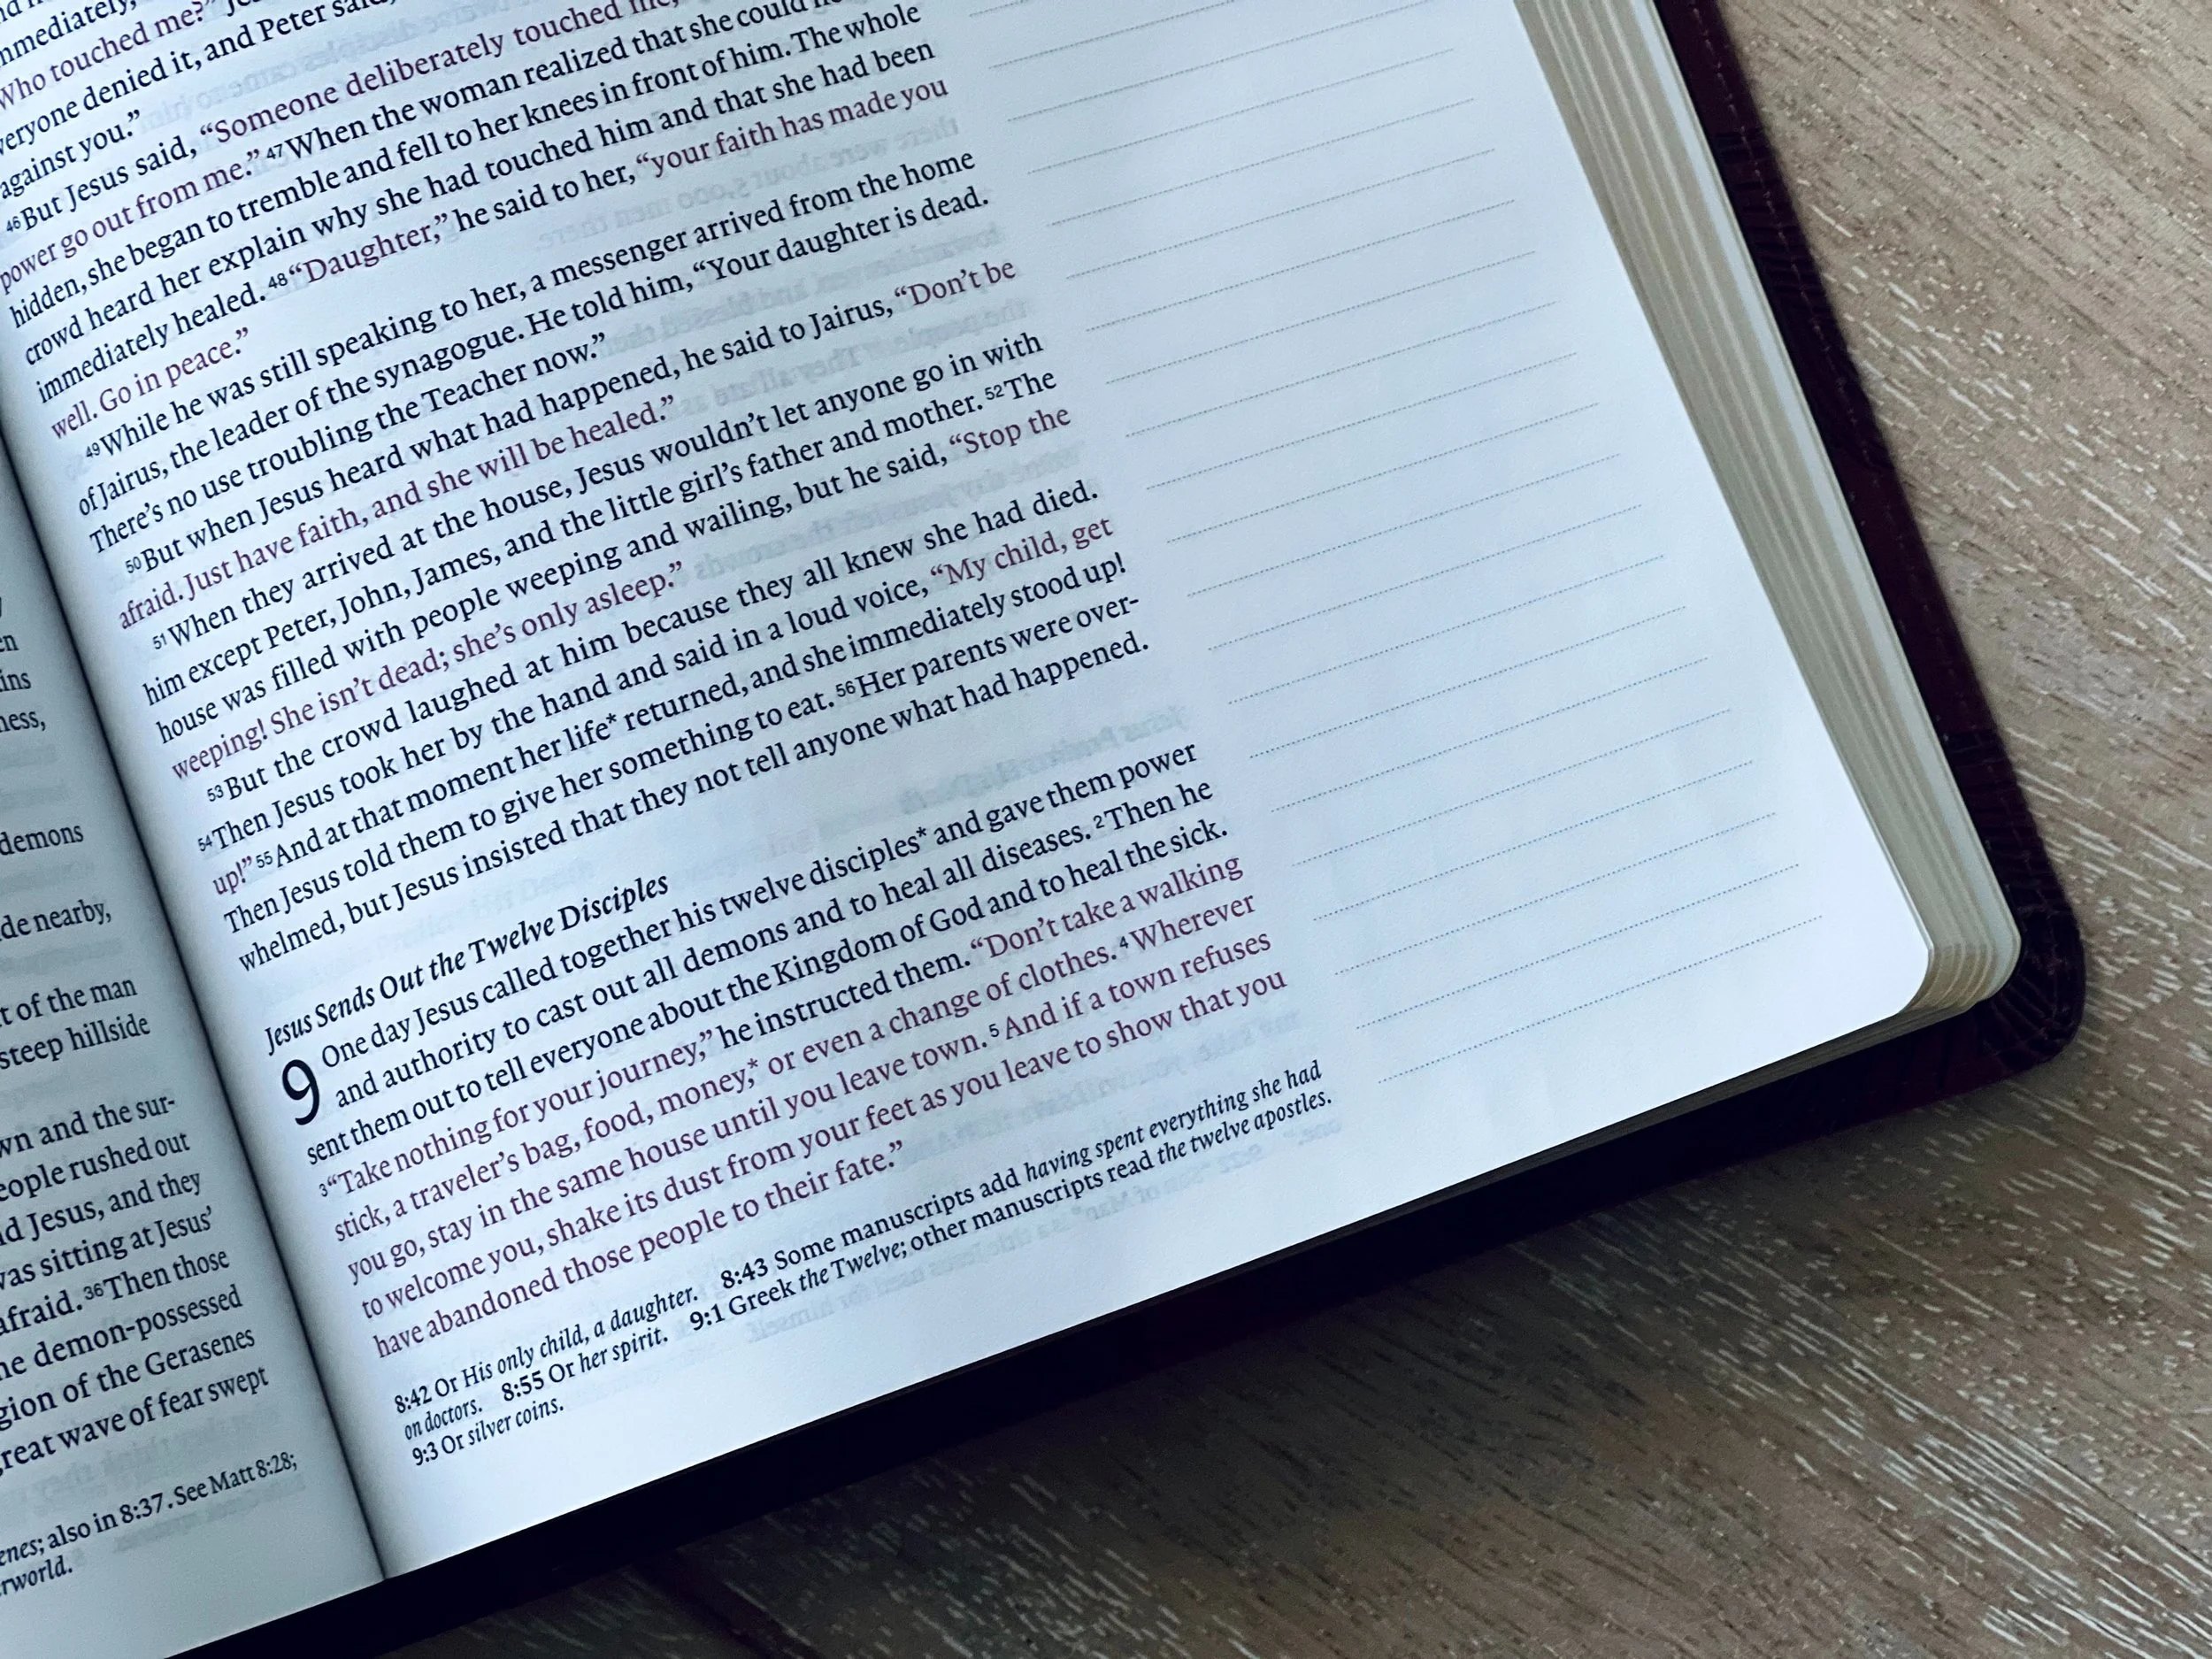 en
ins
ness,
demons
de nearby,
t of the man
steep hillside
wn and the sur-
eople rushed out
d Jesus, and they
was sitting at Jesus'
afraid. 36Then those
he demon-possessed
gion of the Gerasenes
great wave of fear swept
enes; also in 8:37. See Matt 8:28;
rworld.
mmediately,
Who touched me?"
veryone denied it, and Peter said,
against you."
46But Jesus said, "Someone deliberately touched me,
power go out from me." 47When the woman realized that she could
hidden, she began to tremble and fell to her knees in front of him. The whole
crowd heard her explain why she had touched him and that she had been
immediately healed. 48"Daughter," he said to her, "your faith has made you
well. Go in peace."
49While he was still speaking to her, a messenger arrived from the home
of Jairus, the leader of the synagogue. He told him, "Your daughter is dead.
There's no use troubling the Teacher now."
50But when Jesus heard what had happened, he said to Jairus, "Don't be
afraid. Just have faith, and she will be healed."
51When they arrived at the house, Jesus wouldn't let anyone go in with
him except Peter, John, James, and the little girl's father and mother. 52The
house was filled with people weeping and wailing, but he said, "Stop the
weeping! She isn't dead; she's only asleep."
53But the crowd laughed at him because they all knew she had died.
54Then Jesus took her by the hand and said in a loud voice, "My child, get
up!" 55And at that moment her life* returned, and she immediately stood up!
Then Jesus told them to give her something to eat. 56Her parents were over-
whelmed, but Jesus insisted that they not tell anyone what had happened.
Jesus Sends Out the Twelve Disciples
9 One day Jesus called together his twelve disciples* and gave them power
and authority to cast out all demons and to heal all diseases. 2Then he
sent them out to tell everyone about the Kingdom of God and to heal the sick.
3"Take nothing for your journey," he instructed them. "Don't take a walking
stick, a traveler's bag, food, money,* or even a change of clothes. 4Wherever
you go, stay in the same house until you leave town. 5And if a town refuses
to welcome you, shake its dust from your feet as you leave to show that you
have abandoned those people to their fate."
8:42 Or His only child, a daughter. 8:43 Some manuscripts add having spent everything she had
on doctors. 8:55 Or her spirit. 9:1 Greek the Twelve; other manuscripts read the twelve apostles.
9:3 Or silver coins.